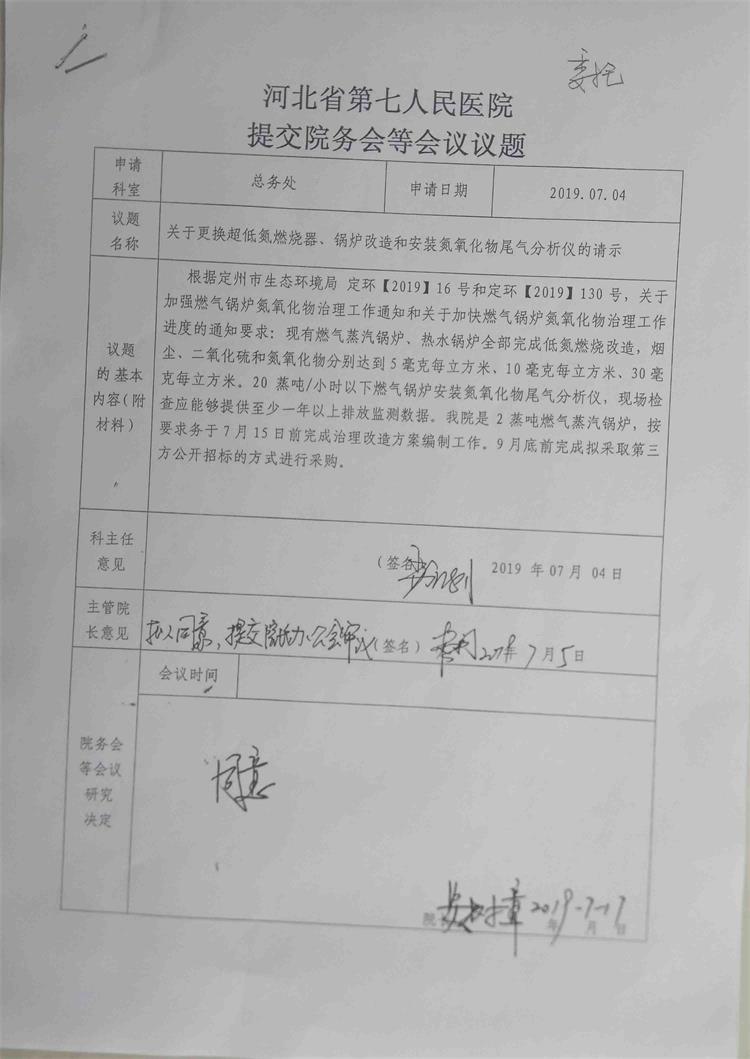 委托
河北省第七人民医院
提交院务会等会议议题
申请
科室
总务处
申请日期
2019.07.04
议题
名称
关于更换超低氮燃烧器、锅炉改造和安装氮氧化物尾气分析仪的请示
议题
的 基本
内容（附
材料）
根据定州市生态环境局 定环【2019】16 号和定环【2019】130 号，关于
加强燃气锅炉氮氧化物治理工作通知和关于加快燃气锅炉氮氧化物治理工作
进度的通知要求：现有燃气蒸汽锅炉、热水锅炉全部完成低氮燃烧改造，烟
尘、二氧化硫和氮氧化物分别达到 5 毫克每立方米、10 毫克每立方米、30 毫
克每立方米。20 蒸吨/小时以下燃气锅炉安装氮氧化物尾气分析仪，现场检
查应能够提供至少一年以上排放监测数据。我院是 2 蒸吨燃气蒸汽锅炉，按
要求务于 7 月 15 日前完成治理改造方案编制工作。9 月底前完成拟采取第三
方公开招标的方式进行采购。
科主任
意见
（签名） 2019 年 07 月 04 日
主管院
长意见
拟同意，提交院长办公会审议（签名） 2019年 7 月 5 日
会议时间
院务会
等会议
研究
决定
同意
院长 2019-7-17
年 月 日